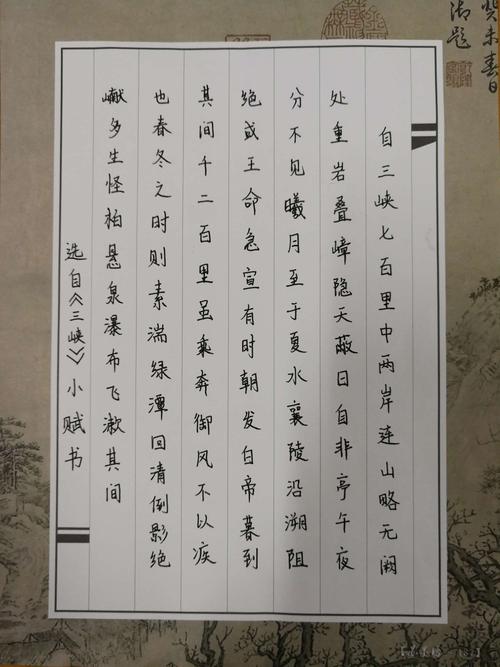 自三峡七百里中两岸连山略无阙
处重岩叠嶂隐天蔽日自非亭午夜
分不见曦月至于夏水襄陵沿溯阻
绝或王命急宣有时朝发白帝暮到
其间千二百里虽乘奔御风不以疾
也春冬之时则素湍绿潭回清倒影绝
巘多生怪柏悬泉瀑布飞漱其间
选自《三峡》小赋书
癸未春日
御题